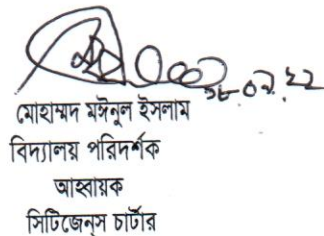 ২৮.০২.২২
মোহাম্মদ মঈনুল ইসলাম
বিদ্যালয় পরিদর্শক
আহ্বায়ক
সিটিজেন্‌স চার্টার